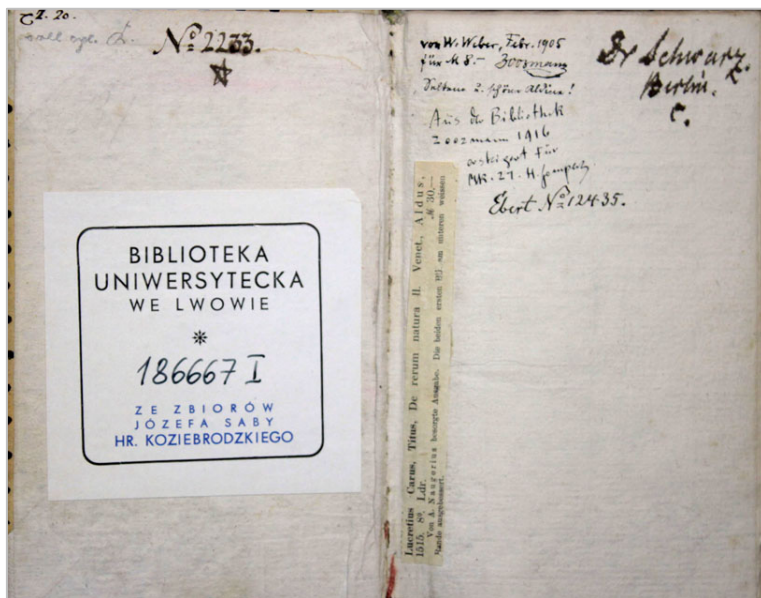 T2. 20.
coll. cpl. L.
No 2233.
BIBLIOTEKA
UNIWERSYTECKA
WE LWOWIE
186667 I
ZE ZBIORÓW
JÓZEFA SABY
HR. KOZIEBRODZKIEGO
von W. Weber, Febr. 1905
für M 8.- Zoozmann
Seltene u. schöne Aldine!
Aus der Bibliothek
Zoozmann 1916
ersteigert für
Mk. 27.
Ebert No 12435.
Dr Schwarz.
Berlin.
C.
Lucretius Carus, Titus, De rerum natura ll. Venet., Aldus,
1515. 8º. Ldr. M 30,—
Von A. Naugerius besorgte Ausgabe. Die beiden ersten Bll. am unteren weissen
Rande ausgebessert.